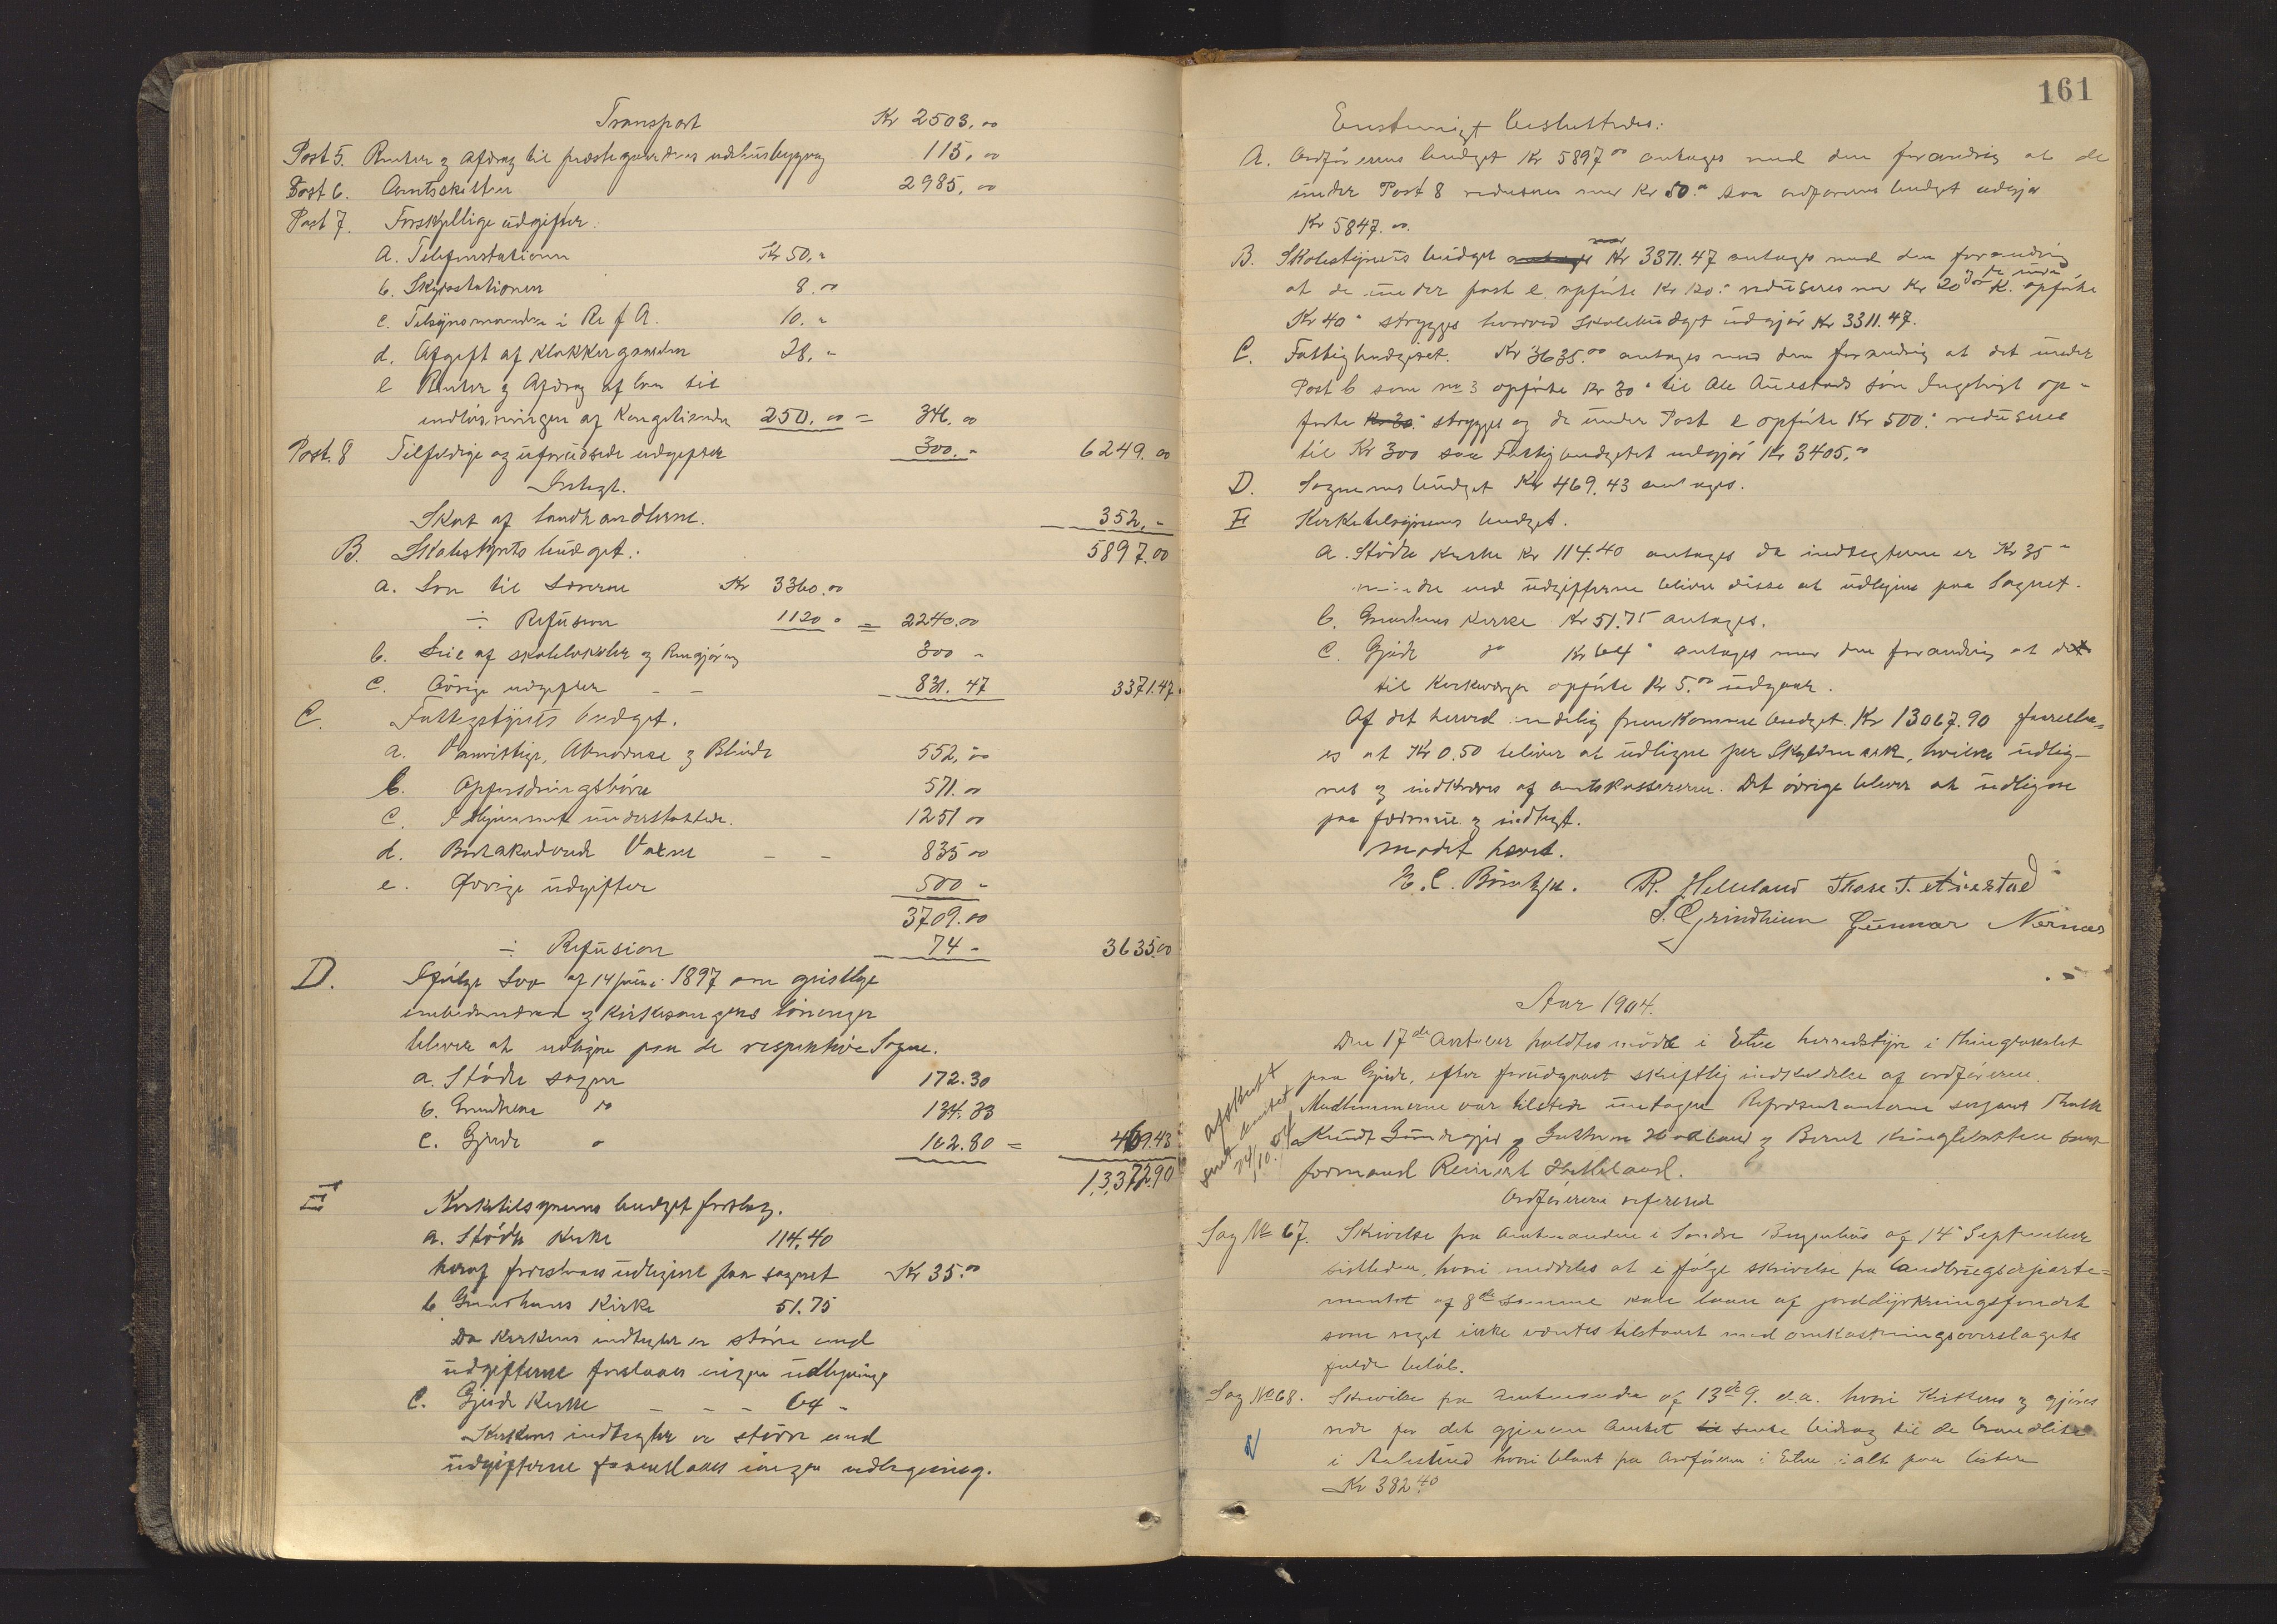 Transport Kr 2503.00
Post 5. Renter og Afdrag til præstegaardens udhusbygning 115.00
Post 6. Amtsskatten 2985.00
Post 7. Forskjellige udgifter:
a. Telefonstationen Kr 50.-
b. Skydsstationen 8.00
c. Tilsynsmanden i R. f A. 10.-
d. Afgift af Klokkergaarden 28.-
e Renter og Afdrag af laan til
indløsningen af Kongetienden 250.00 = 346.00
Post. 8 Tilfældige og uforudseede udgifter 300.- 6249.00
Indtægt.
Skat af landhandlerne. 352.-
B. Skolestyrets budget: 5897.00
a. Løn til Lærerne Kr 3360.00
÷ Refusion 1120.- = 2240.00
b. Leie af skolelokaler og Rengjøring 300 -
c. Øvrige udgifter - - 831.47 3371.47
C. Fattigstyrets budget.
a. Vanvittige, Abnorme og Blinde 552.00
b. Opfostringsbørn 571.00
c. I Hjemmet understøttede. 1251.00
d. Bortakorderede Voxne - - 835.00
e. Øvrige udgifter 500 -
3709.00
÷ Refusion 74 - 3635.00
D. Ifølge Lov af 14 juni 1897 om geistlige
embedsmænd og Kirkesangeres lønninger
bliver at udligne paa de respektive Sogne.
a. Stødle sogn 172.30
b. Grindheim do 134.33
c. Gjerde " 162.80 = 469.43
13,372.90
E Kirketilsynenes budgetforslag.
a. Stødle Kirke 114.40
heraf foreslaaes udlignet paa sognet Kr 35.00
b Grindheims Kirke 51.75
Da Kirkens indtægter er større end
udgifterne foreslaaes ingen udligning
c. Gjerde Kirke - - - 64 -
Kirkens indtægter er større end
udgifterne foreslaaes ingen udligning.
161
Enstemigt besluttedes:
A. Ordførerens budget Kr 5897.00 antages med den forandring at de
under Post 8 reduseres med Kr 50.- saa ordførerens budget udgjør
Kr 5847.00.
B. Skolestyrets budget Kr 3371.47 antages med den forandring
at de under post c. opførte Kr 120.- reduseres med Kr 20 og de under K. opførte
Kr 40.- stryges hvorved Skolebudget udgjør Kr 3311.47.
C. Fattigbudgettet. Kr 3635.00 antages med den forandring at det under
Post b som no 3 opførte Kr 30.- til Ole Auestads søn Ingebrigt op-
førte Kr 30.- stryges og de under Post e opførte Kr 500.- reduseres
til Kr 300 saa Fattigbudgettet udgjør Kr 3405.00
D. Sognenes budget Kr 469.43 antages.
E Kirketilsynenes budget.
a. Stødle Kirke Kr 114.40 antages da indtægterne er Kr 35 -
mindre end udgifterne bliver disse at udligne paa Sognet.
b. Grindheims Kirke Kr 51.75 antages.
c. Gjerde do Kr 64.- antages med den forandring at det
til Kirkeværgen opførte Kr 5.00 udgaar.
Af det herved endelig fremkomne budget Kr 13067.90 foreslaa-
es at Kr 0.50 bliver at udligne per Skyldmark, hvilke udlig-
nes og indkræves af amtskassereren. Det øvrige bliver at udligne
paa formue og indtægt.
Mødet hævet.
R. Helleland Thore T. Auestad
S. Grindheim Gunnar Nernæs
Aar 1904.
Den 17de October holdtes møde i Etne herredstyre i thinglokalet
paa Gjerde, efter forudgaaet skriftlig indkaldelse af ordføreren.
Medlemmerne var tilstede undtagen Repræsentanterne
Knudt og og Bernt samt
formand Reinert Helleland.
Ordføreren refererede
afskrift
sent amtet
24/10. 04
Sag No 67. Skrivelse fra Amtmanden i Søndre Bergenhus af 14 September
sidstleden, hvori meddeles at i følge skrivelse fra Landbrugsdeparte-
mentet af 8de samme kan laan af jorddyrkningsfondet
som regel ikke ventes tilstaaet med omkostningsoverslagets
fulde beløb.
Sag No 68. Skrivelse fra Amtmanden af 13de 9. d.a. hvori kvitteres og gjøres
rede for det gjennem Amtet sente bidrag til de brandlidte
i Aalesund hvori blant fra Ordføreren i Etne i alt paa lister
Kr 382.40